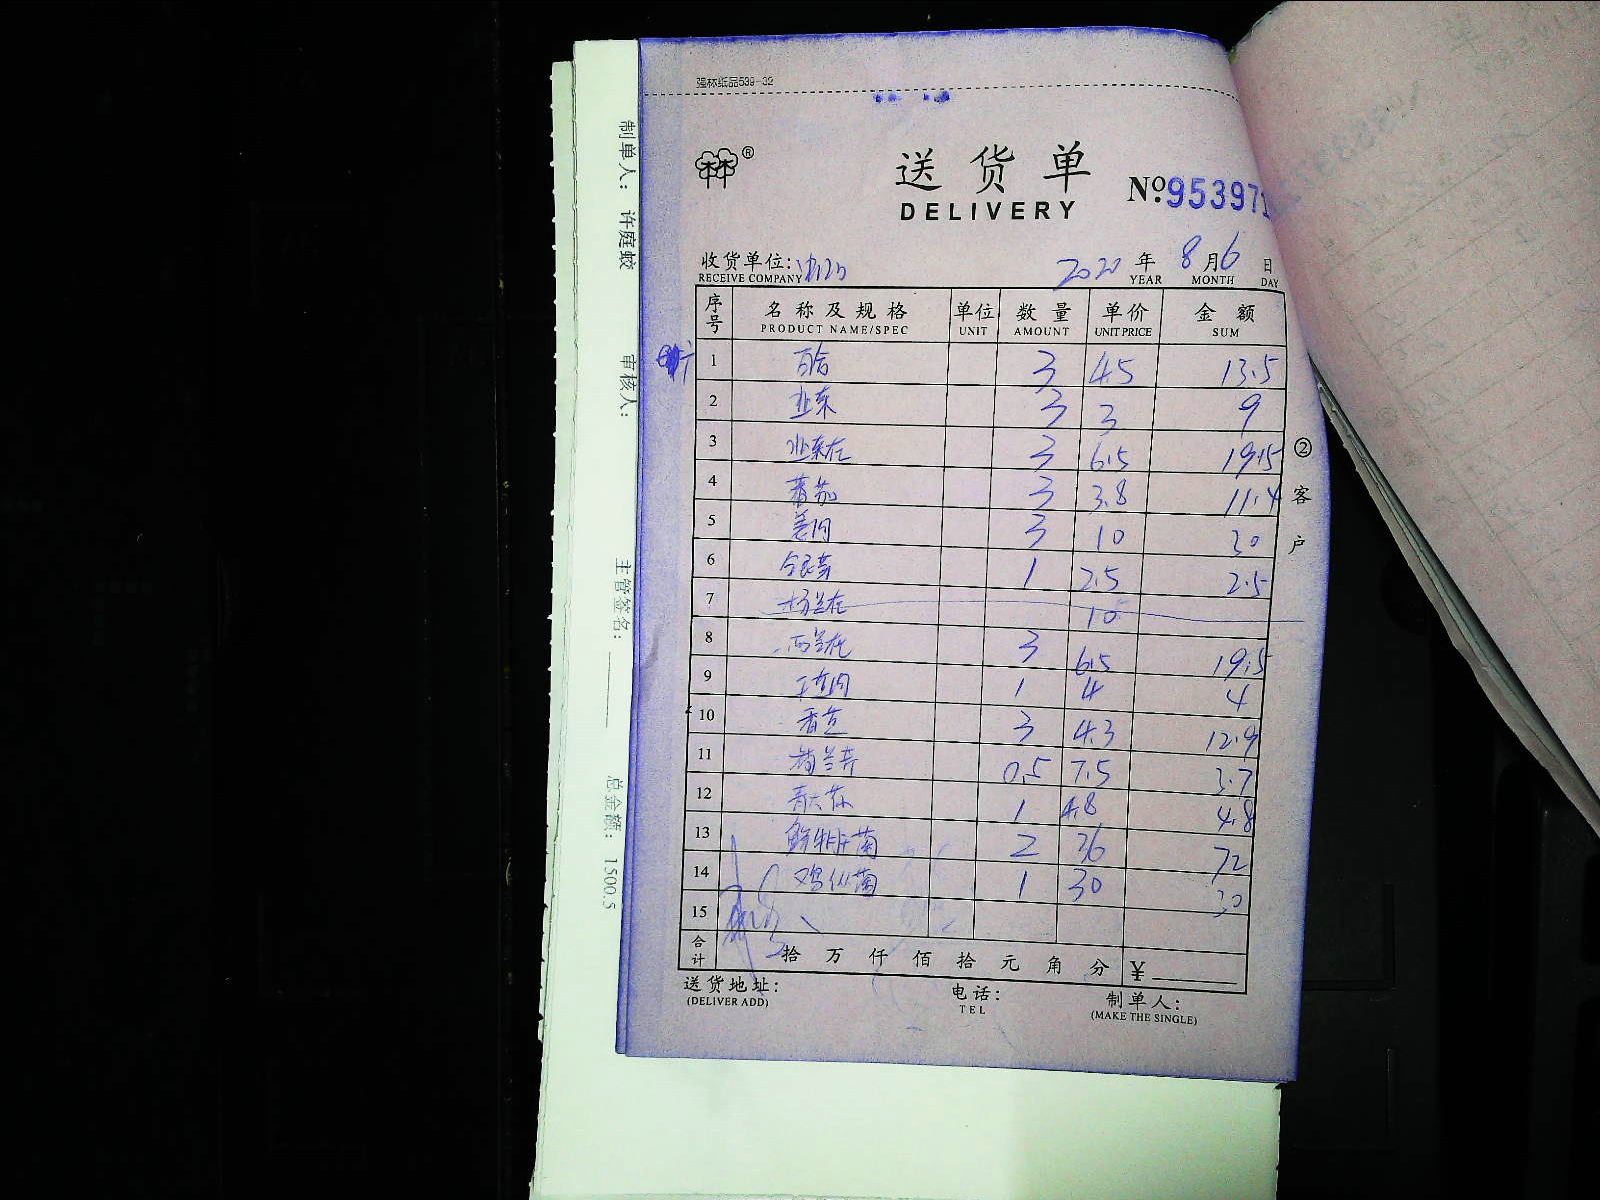 强林纸品539-32
®
送货单
DELIVERY
No.953971
收货单位:
RECEIVE COMPANY
2020 年 8 月 6 日
YEAR MONTH DAY
序号 名称及规格 单位 数量 单价 金额
PRODUCT NAME/SPEC UNIT AMOUNT UNIT PRICE SUM
1 百合 3 4.5 13.5
2 韭菜 3 3 9
3 韭菜花 3 6.5 19.5
4 番茄 3 3.8 11.4
5 姜肉 3 10 30
6 1 2.5 2.5
7 10
8 西兰花 3 6.5 19.5
9 1 4 4
10 香芝 3 4.3 12.9
11 荷兰芹 0.5 7.5 3.7
12 1 4.8 4.8
13 鲜牛肝菌 2 36 72
14 鸡枞菌 1 30 30
15
合计 拾 万 仟 佰 拾 元 角 分 ¥
送货地址:
(DELIVER ADD)
电话:
TEL
制单人:
(MAKE THE SINGLE)
②客户
制单人: 许庭蛟 审核人: 主管签名: 总金额: 1500.5